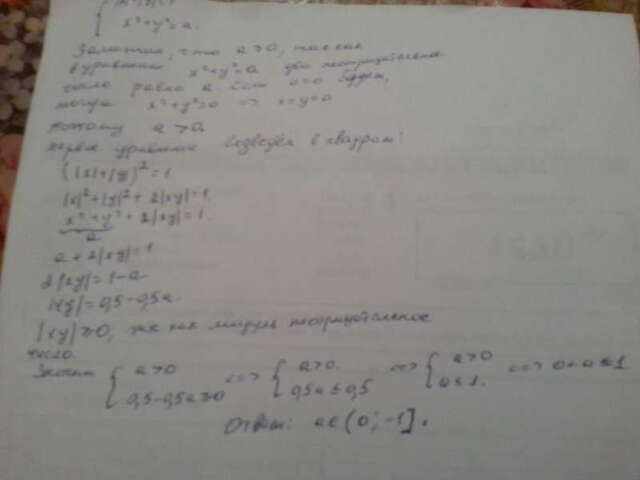 x²+y²=a.
Заметим, что a≥0, так как
в уравнении x²+y²=a два неотрицательное
число равно a. Если a=0 будет,
тогда x²+y²=0 => x=y=0
поэтому a>0.
первое уравнение возведём в квадрат:
(|x|+|y|)²=1
|x|²+|y|²+2|xy|=1.
x²+y²+2|xy|=1.
a
a+2|xy|=1
2|xy|=1-a
|xy|=0,5-0,5a.
|xy|≥0, так как модуль неотрицательное
число.
Значит { a>0 0,5-0,5a≥0 <=> { a>0. 0,5a≤0,5 <=> { a>0 a≤1. <=> 0<a≤1
Ответ: a∈(0;-1].